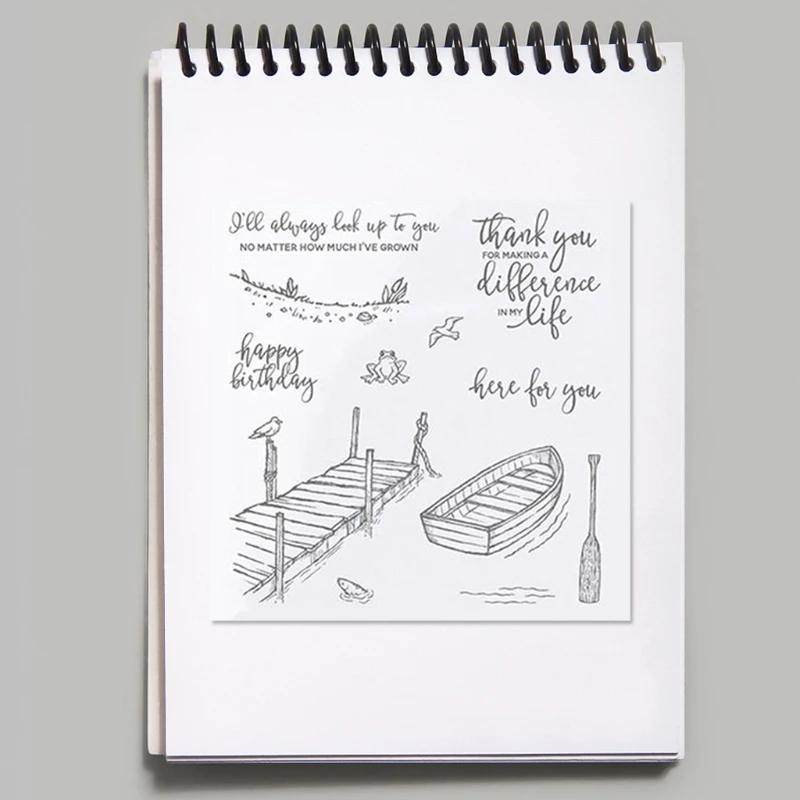 I'll always look up to you
NO MATTER HOW MUCH I'VE GROWN
thank you
FOR MAKING A
difference
IN MY life
happy
birthday
here for you